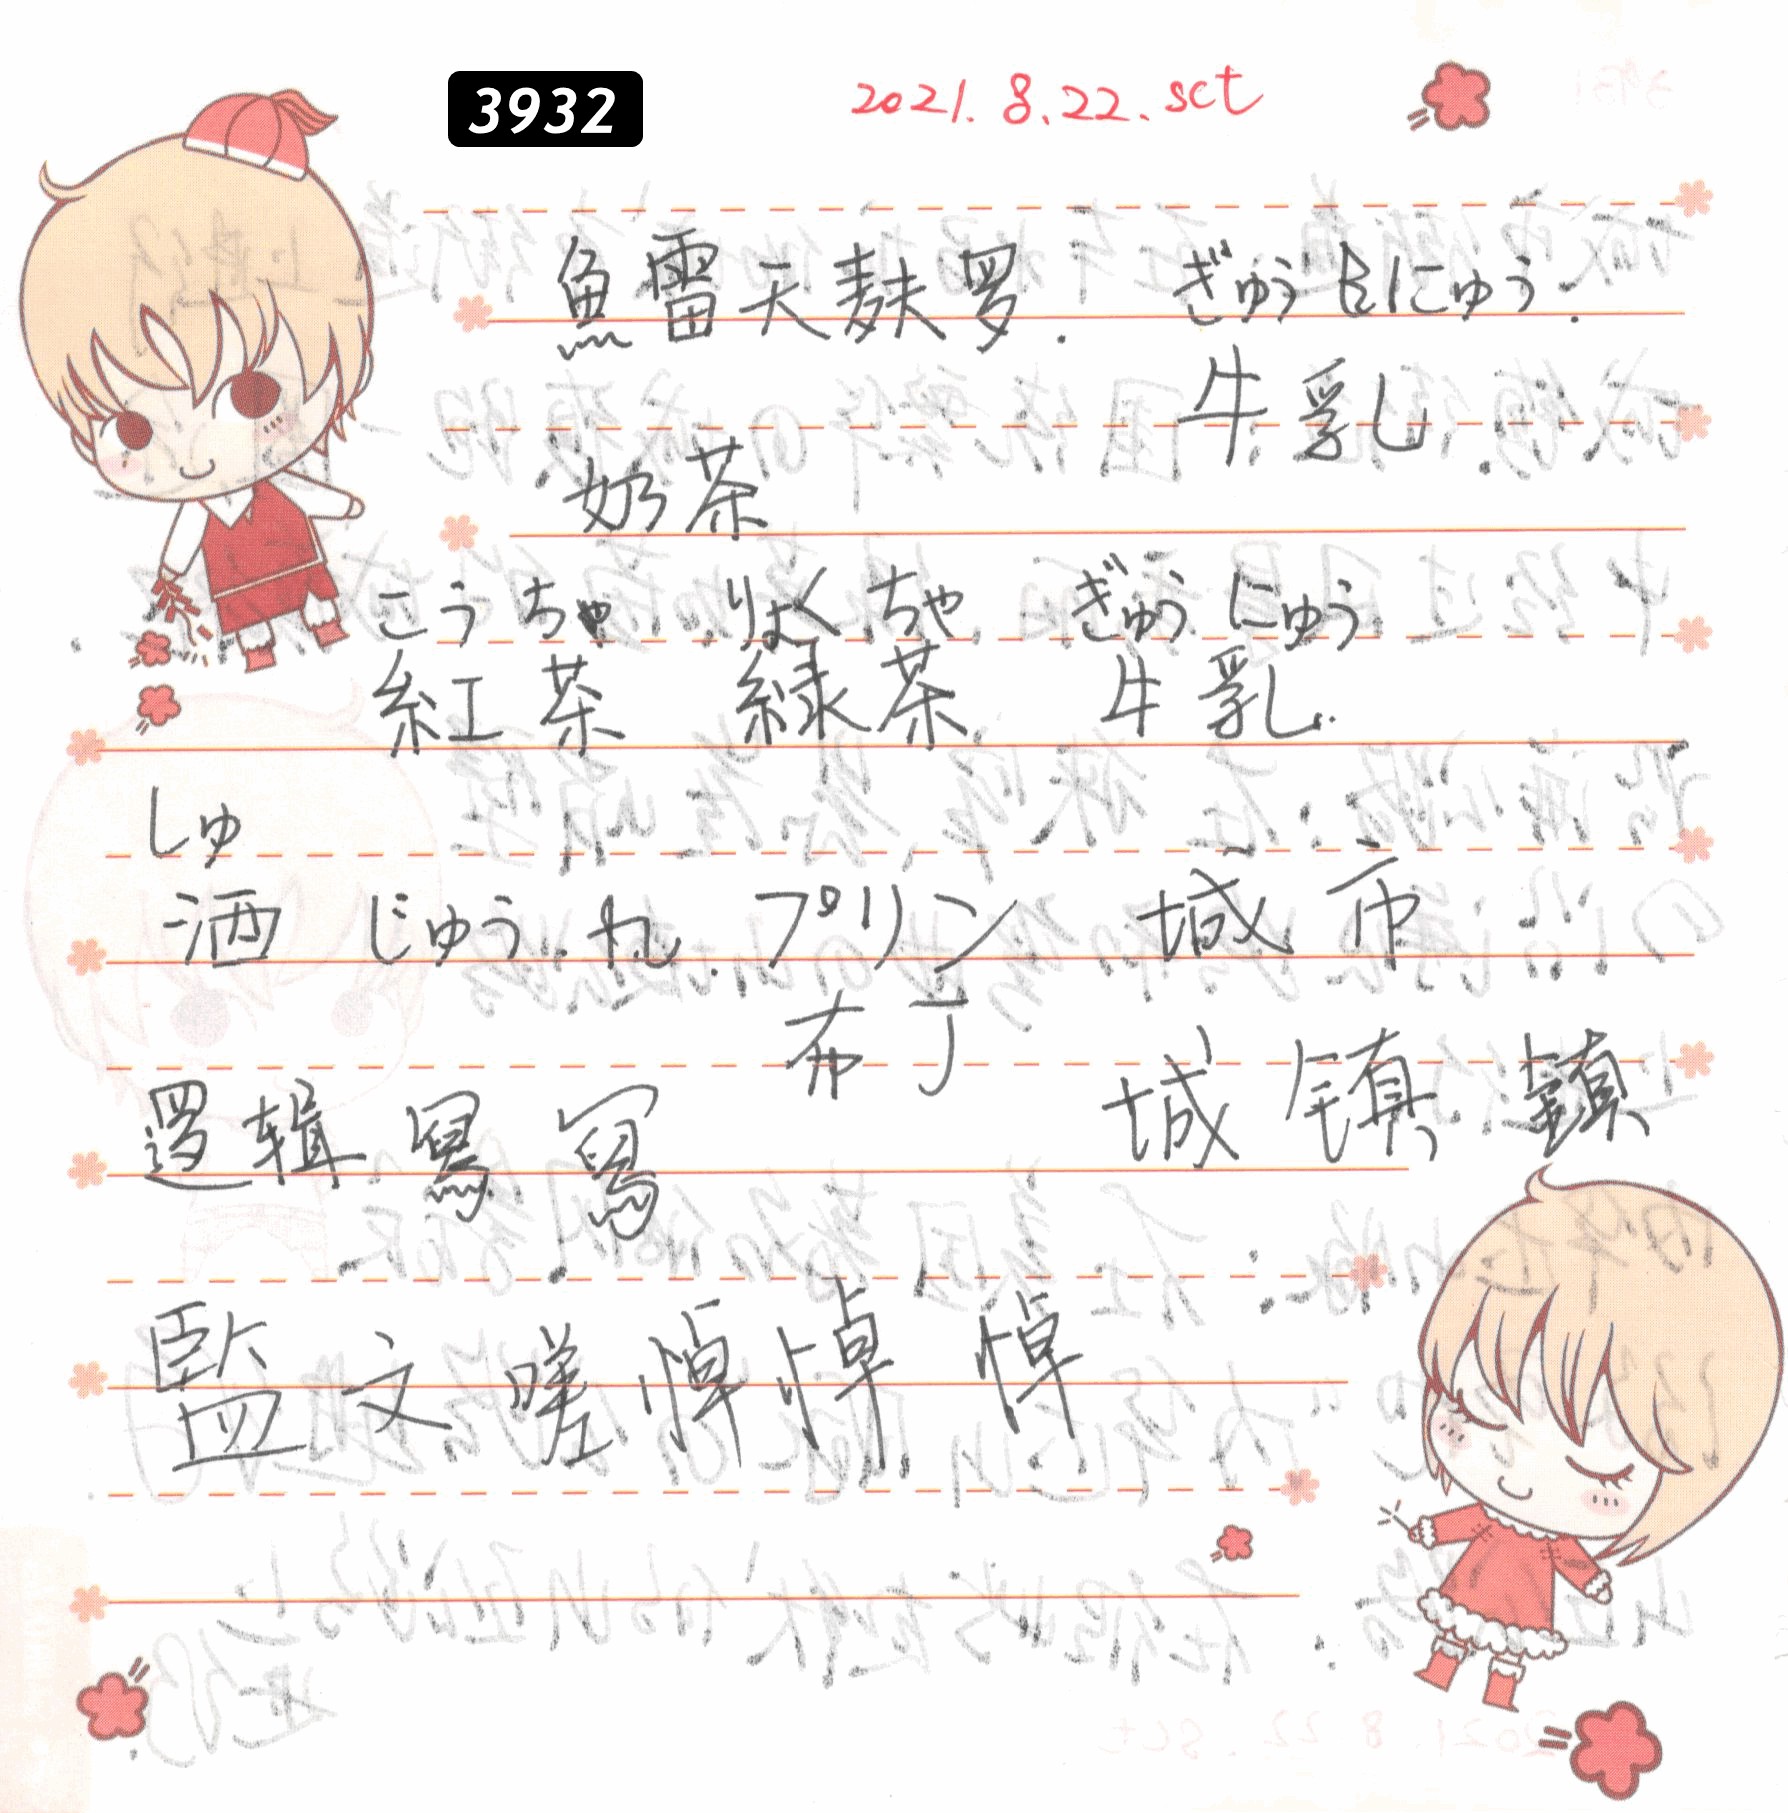 3932 2021.8.22.sct
魚雷天麩罗. ぎゅうにゅう.
牛乳
奶茶
こうちゃ りょくちゃ ぎゅうにゅう
紅茶 緑茶 牛乳.
しゅ
洒 じゅう.れ.プリン 城市
布丁
城镇 鎮
逻辑
監文嗟悼悼 悼